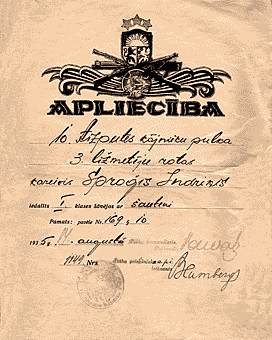 APLIECĪBA
10. Aizputes kājnieku pulka
3. ložmetēju rotas
kareivis Sproģis Indriķis
iedalīts I. klases kāvējos ar šauteni
Pamats: pavēle Nr. 169 § 10.
1935 g. augustā
1149 Nr.
leitnants Blumbergs